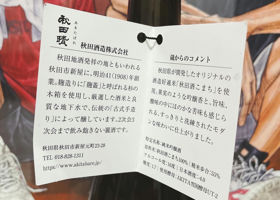 秋田晴
あきたばれ
秋田酒造株式会社
秋田地酒発祥の地ともいわれる
秋田市新屋に、明治41(1908)年創
業。麹造りに「麹蓋」と呼ばれる杉の
木箱を使用し、厳選した酒米と良
質な地下水で、伝承の「古式手造
り」によって醸しています。2次会3
次会まで飲み飽きない美酒です。
秋田県秋田市新屋元町23-28
TEL 018-828-1311
https://www.akitabare.jp/
蔵からのコメント
秋田県が開発したオリジナルの
酒造好適米「秋田酒こまち」を使
用。果実のような吟醸香と、旨味、
酸味の中にほのかな苦味も感じら
れる、すっきりと洗練されたモダ
ンな味わいに仕上がりました。
特定名称:純米吟醸酒